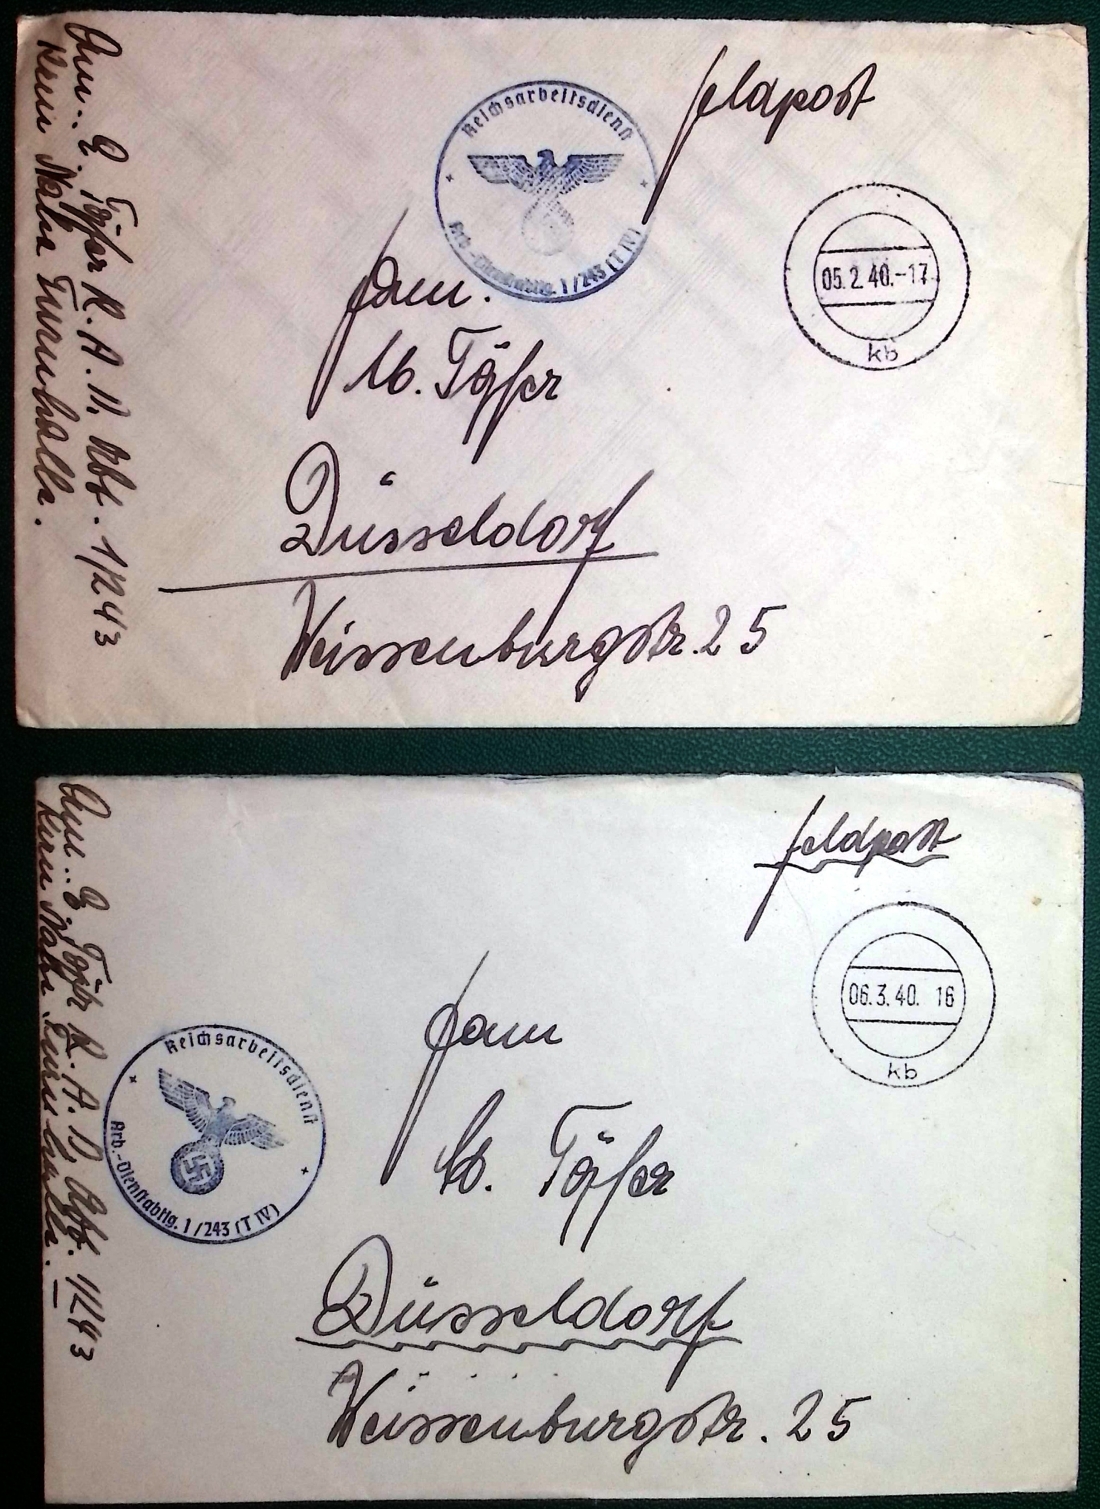 Feldpost
Reichsarbeitsdienst
Arb.-Dienstabtlg. 1/243 (T IV)
05.2.40.-17
kb
Fam.
W. Töpfer
Düsseldorf
Weissenburgstr. 25
Töpfer R. A. D. Abt. 1/243
Kirn Nahe Turnhalle.
Feldpost
06.3.40. 16
kb
Reichsarbeitsdienst
Arb.-Dienstabtlg. 1/243 (T IV)
Fam
W. Töpfer
Düsseldorf
Weissenburgstr. 25
Töpfer R. A. D. Abt. 1/243
Kirn Nahe Turnhalle.